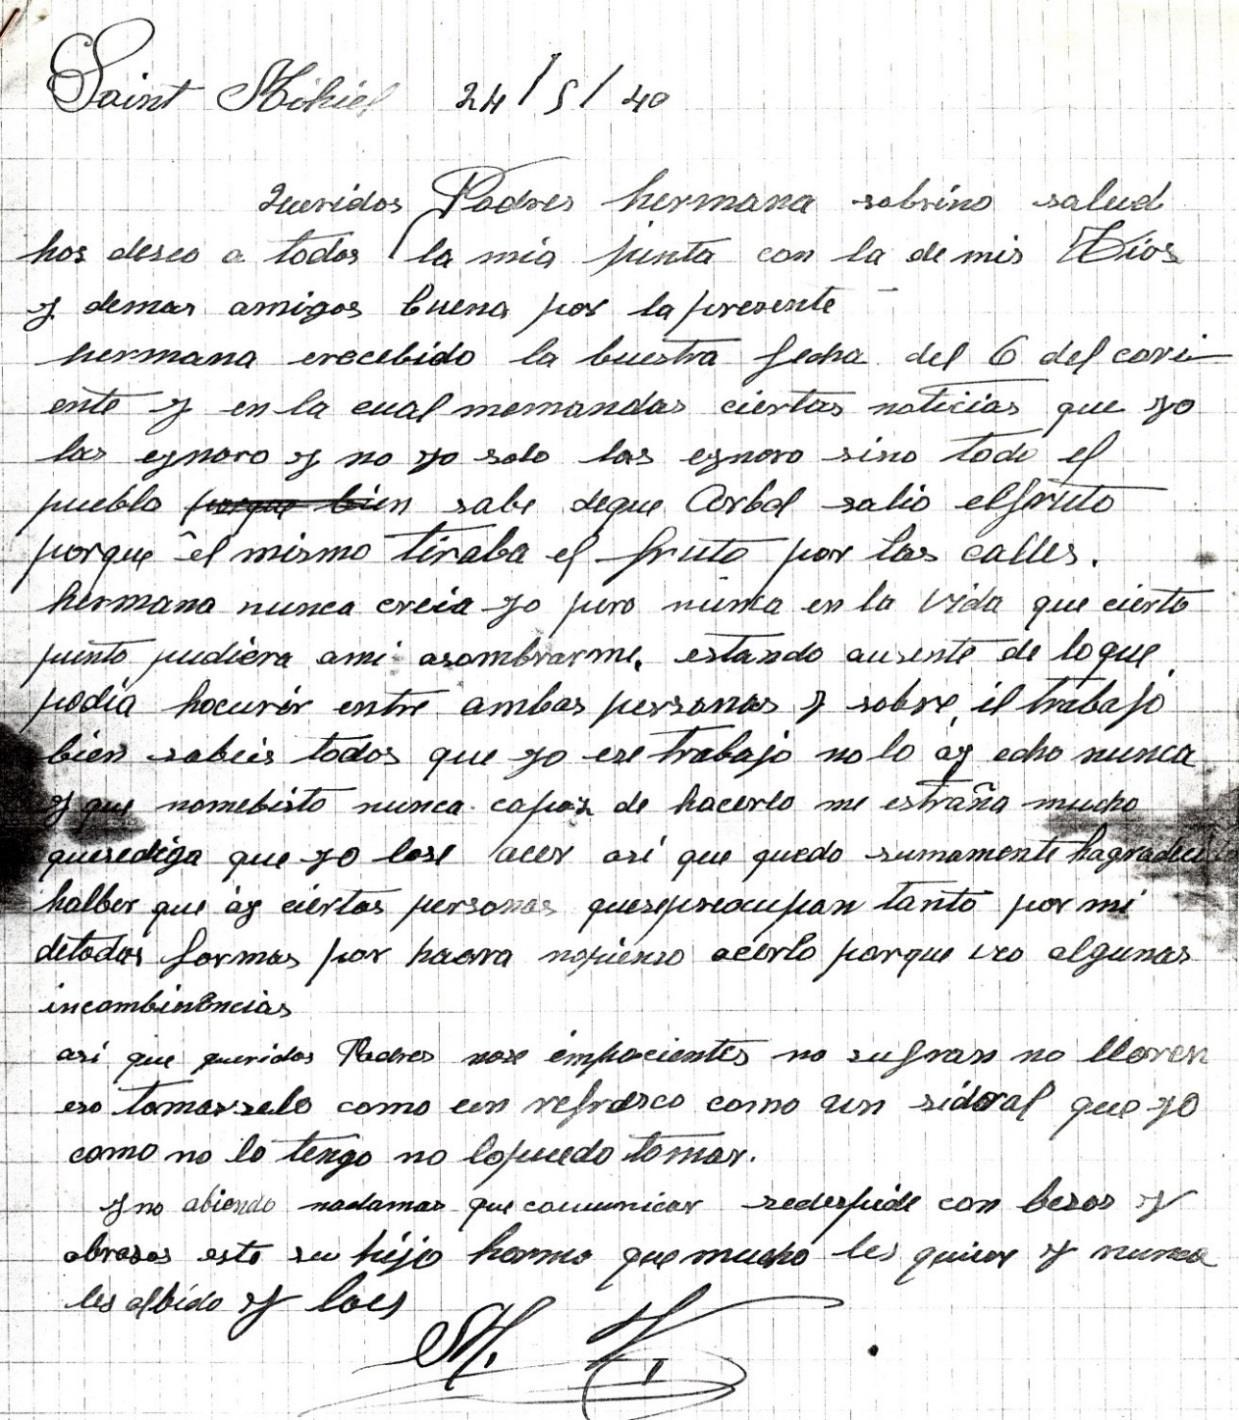 Saint Mihiel 24/5/40
Queridos Padres hermana sobrino salud
hos deseo a todos la mia junta con la de mis Tios
y demas amigos buena por la presente
hermana erecebido la buestra fecha del 6 del cori-
ente y en la cual memandas ciertas noticias que yo
las eynoro y no yo solo las eynoro sino todo el
pueblo porque bien sabe deque Arbol salio elfruto
porque el mismo tiraba el fruto por las calles.
hermana nunca creia yo pero nunca en la vida que cierto
punto pudiera ami asombrarme, estando ausente de loque
podia hocurir entre ambas personas y sobre, el trabajo
bien sabeis todos que yo ese trabajo no lo ay echo nunca
y que nomebisto nunca capaz de hacerlo me estraña mucho
quesediga que yo lose acer asi que quedo sumamente
halber que ay ciertas personas quesepreocupan tanto por mi
detodas formas por haora nopienso acerlo porque veo algunas
incombinencias
asi que queridos Padres nose impacientes no sufran no lloren
eso tomarselo como un refresco como un sidral que yo
como no lo tengo no lopuedo tomar.
y no abiendo nadamas que comunicar sedespide con besos y
abrasos este su hijo hermo que mucho les quiere y nunca
les olbido y loes
M.